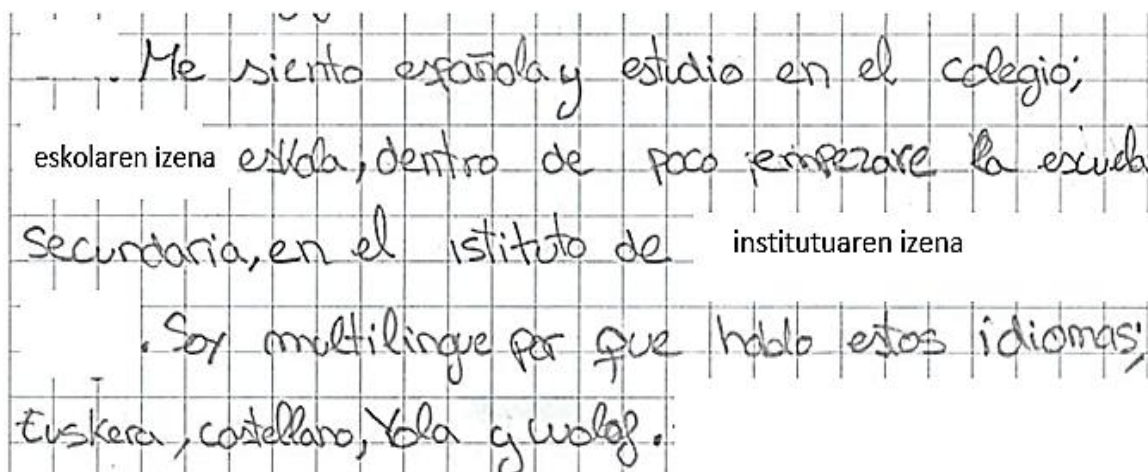 . Me siento española y estudio en el colegio;
eskolaren izena eskola, dentro de poco empezare la escuela
secundaria, en el istituto de institutuaren izena
. Soy multilingue por que hablo estos idiomas;
Euskera, castellano, Yola y wolof.